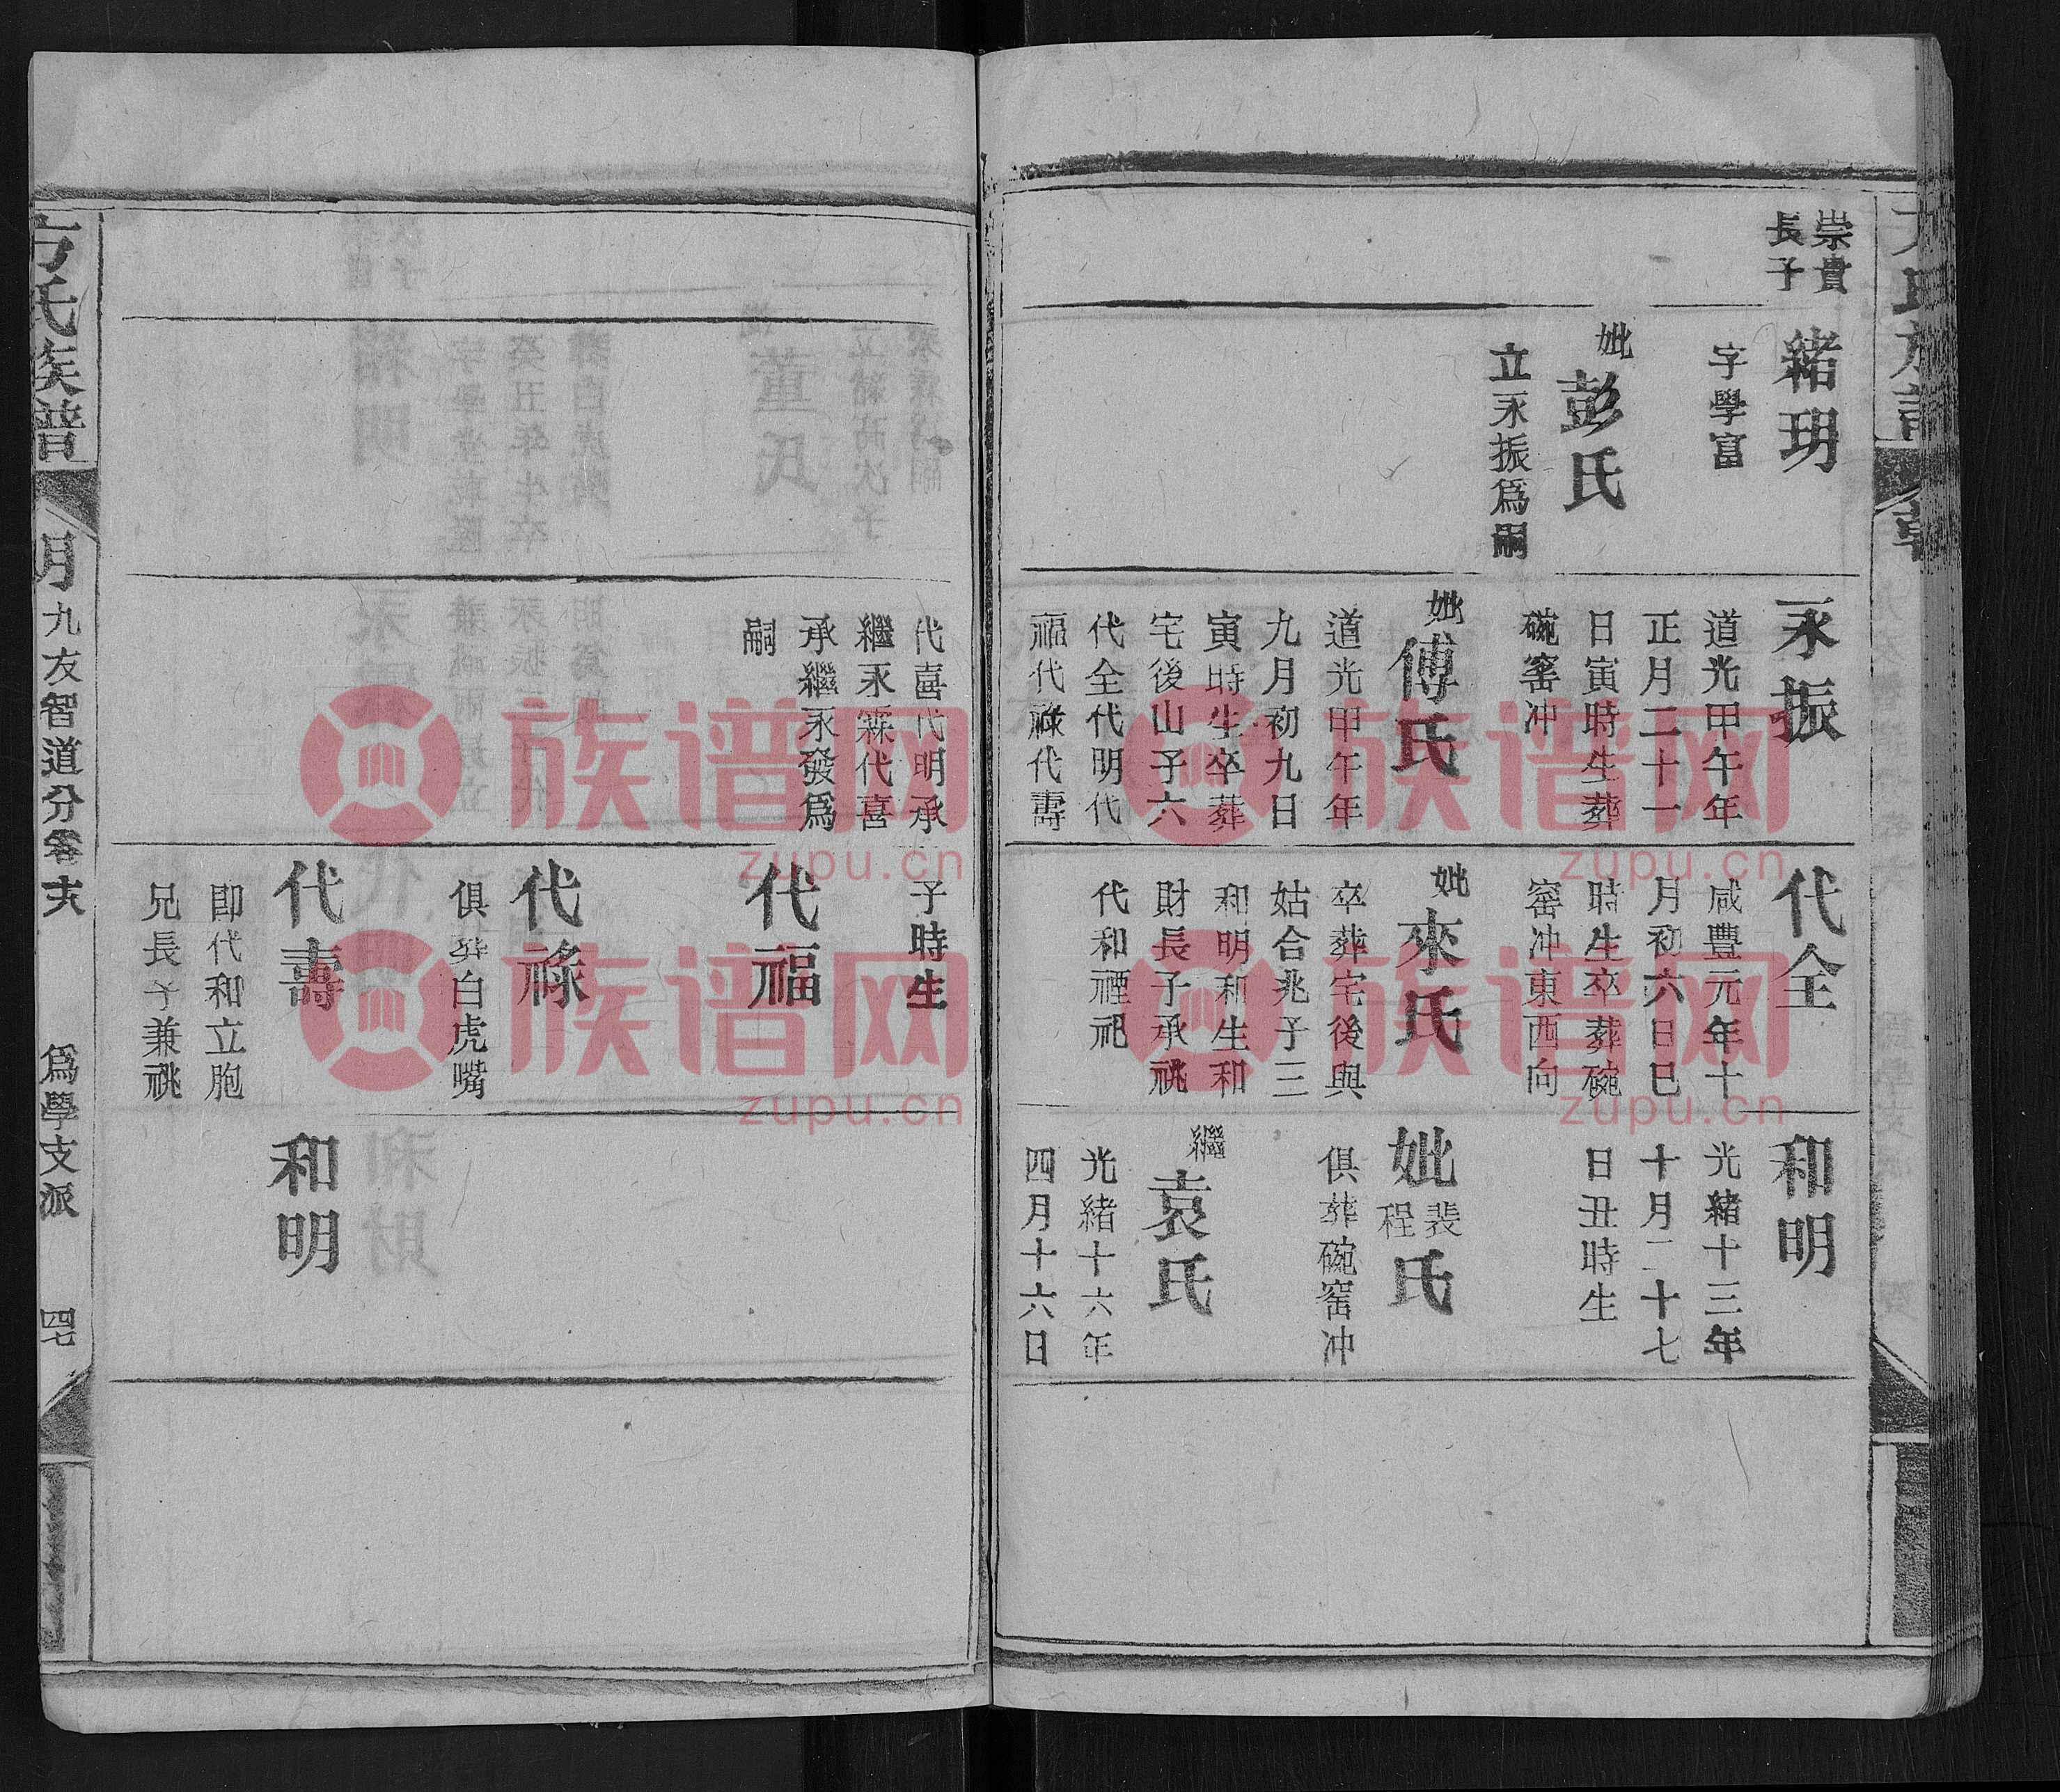 崇貴
長子
緒玥
字學富
妣
彭氏
立永振為嗣
永振
道光甲午年
正月二十一
日寅時生葬
碗窰冲
妣
傅氏
道光甲午年
九月初九日
寅時生卒葬
宅後山子六
代全代明代
福代祿代壽
代全
咸豐元年十
月初六日巳
時生卒葬碗
窰冲東西向
妣
來氏
卒葬宅後與
姑合兆子三
和明和生和
財長子承祧
代和禋祀
和明
光緒十三年
十月二十七
日丑時生
妣裴程氏
俱葬碗窰冲
繼
袁氏
光緒十六年
四月十六日
代喜代明承
繼永霖代喜
承繼永發為
嗣
子時生
代福
代祿
俱葬白虎嘴
代壽
即代和立胞
兄長子兼祧
和明
方氏族譜
明
九友智道分
為學支派
四七
族谱网
zupu.cn
族谱网
zupu.cn
族谱网
zupu.cn
族谱网
zupu.cn